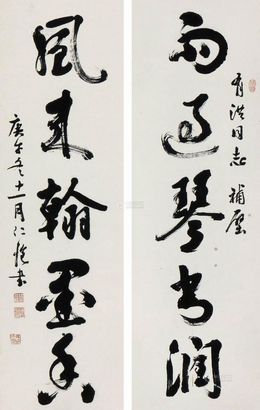 有洪同志補壁
雨過琴書潤
風來翰墨香
庚午冬十一月仁愷書